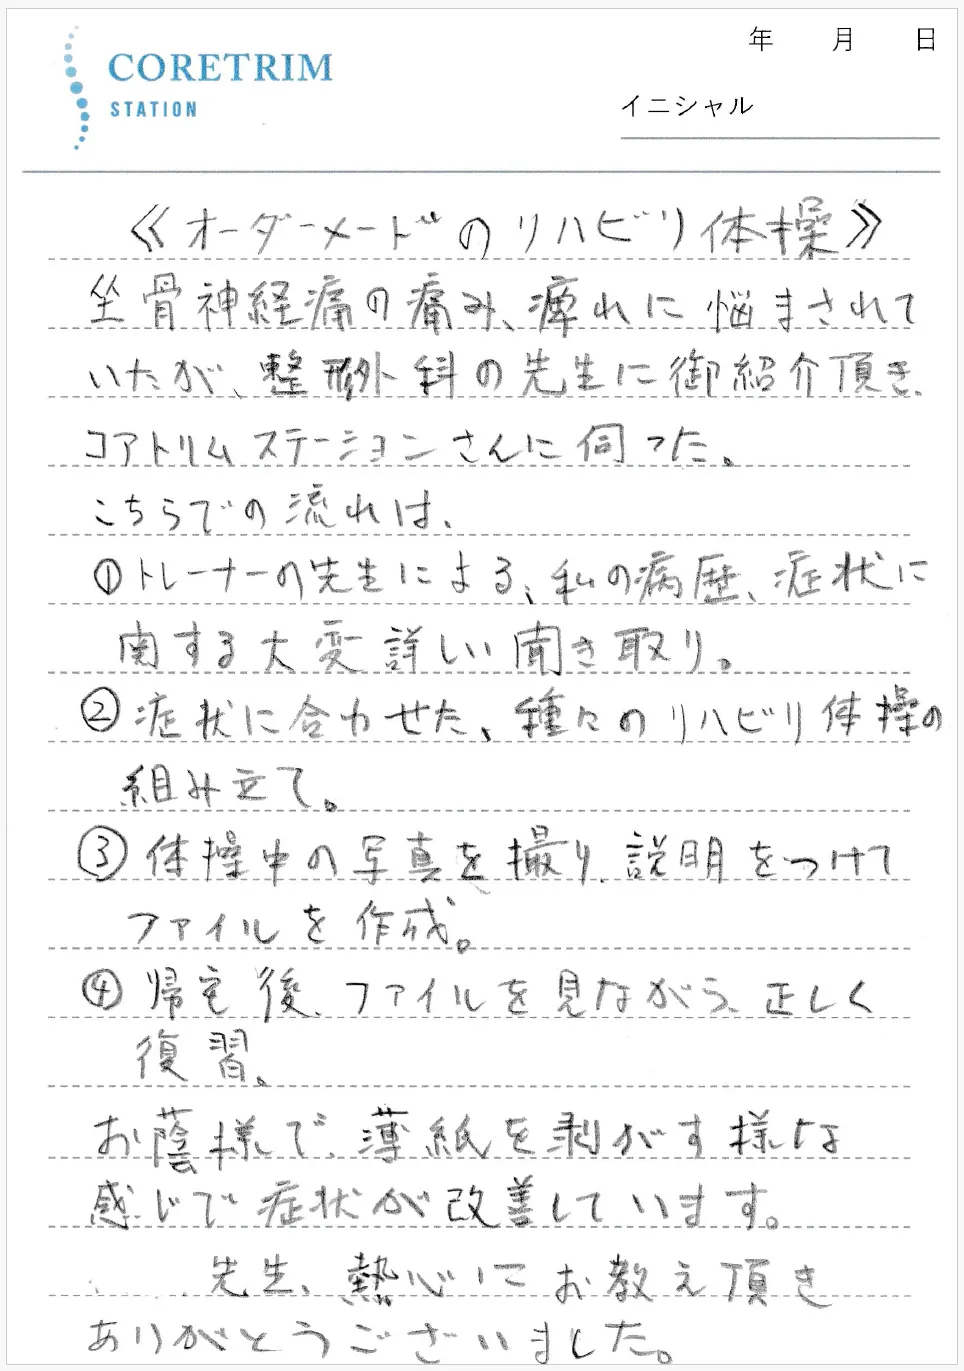 CORETRIM
STATION
年 月 日
イニシャル
《オーダーメードのリハビリ体操》
坐骨神経痛の痛み、痺れに悩まされて
いたが、整形外科の先生に御紹介頂き、
コアトリムステーションさんに伺った。
こちらでの流れは、
①トレーナーの先生による、私の病歴、症状に
関する大変詳しい聞き取り。
②症状に合わせた、種々のリハビリ体操の
組み立て。
③体操中の写真を撮り、説明をつけて
ファイルを作成。
④帰宅後、ファイルを見ながら、正しく
復習。
お蔭様で、薄紙を剥がす様な
感じで症状が改善しています。
先生、熱心にお教え頂き
ありがとうございました。